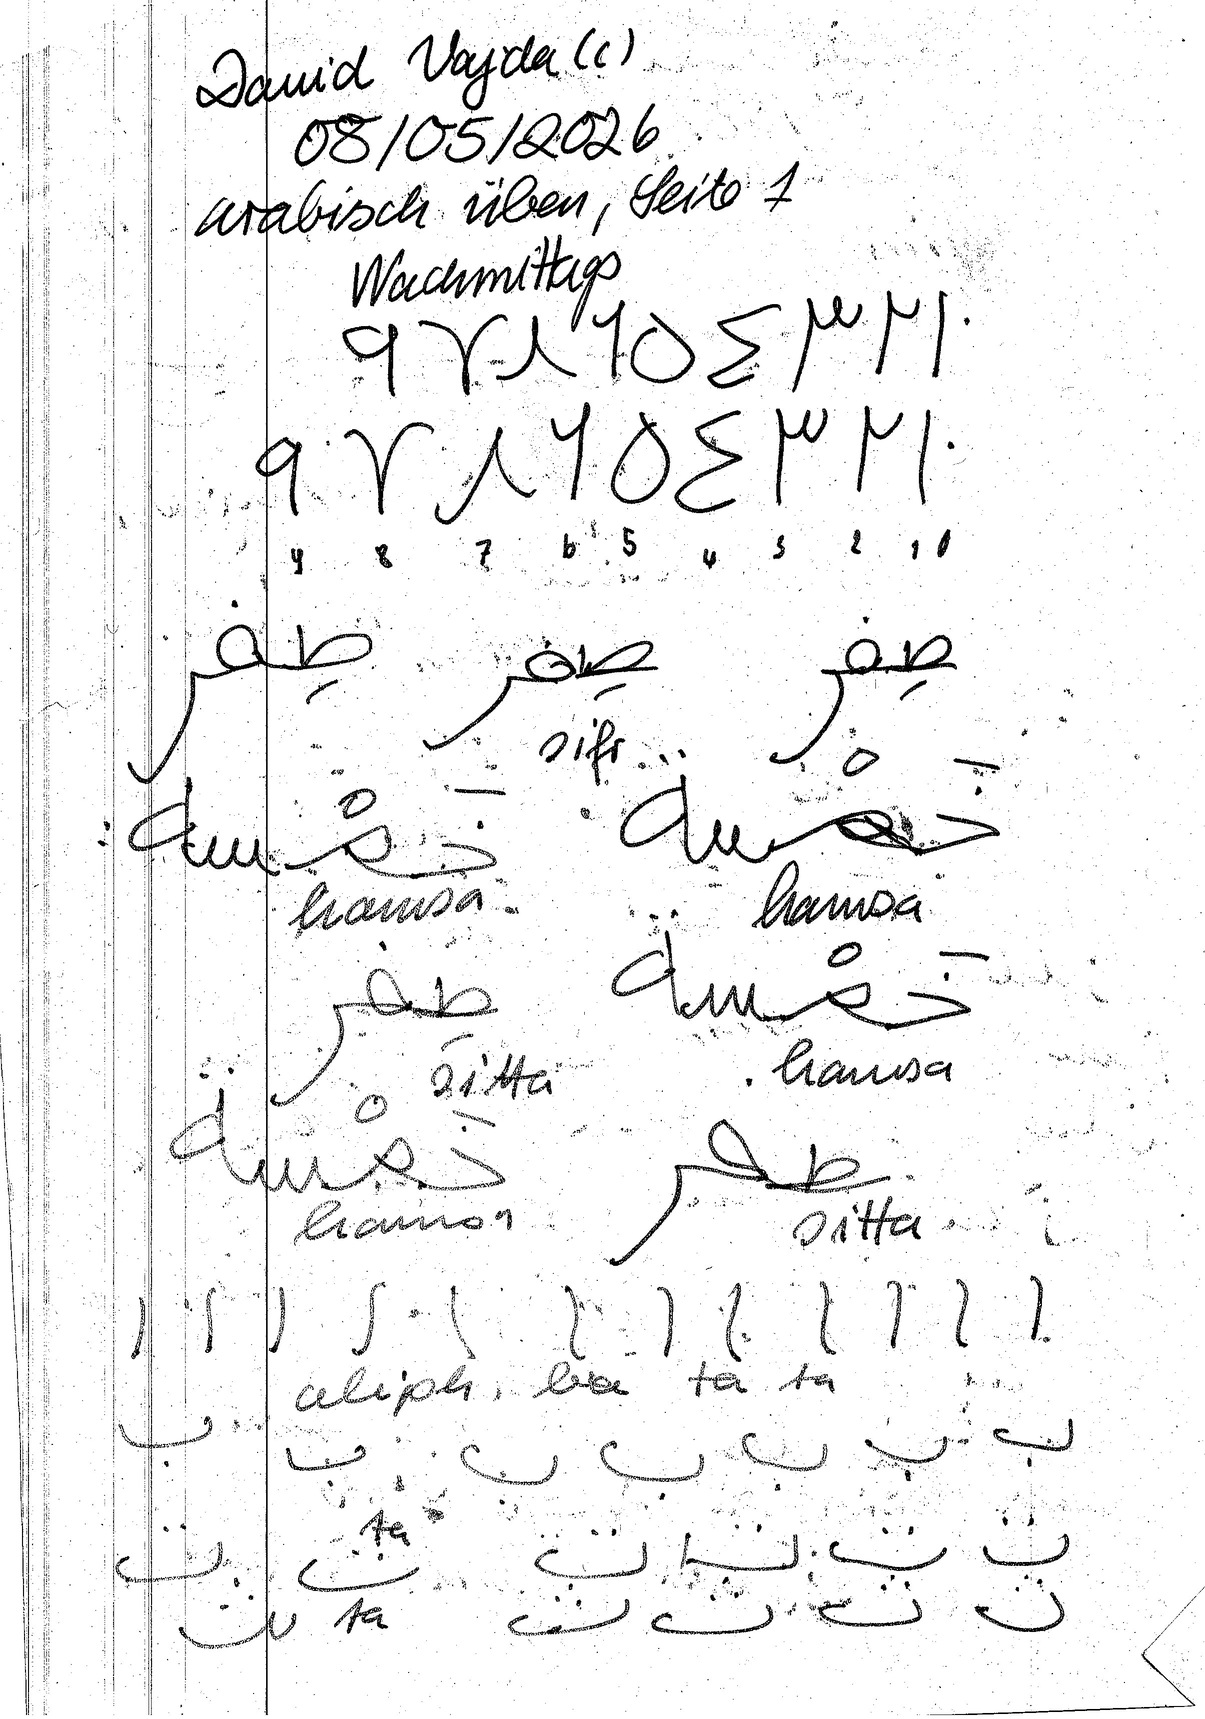 David Vajda (c)
08/05/2026
arabisch üben, Seite 1
Nachmittags
٩ ٧ ٨ ٦ ٥ ٤ ٣ ٢ ١ ٠
٩ ٧ ٨ ٦ ٥ ٤ ٣ ٢ ١ ٠
9 8 7 6 5 4 3 2 1 0
صِفر صِفر صِفر
sifr
خَمْسة خَمْسة
hamsa hamsa
صِفر خَمْسة
sitta hamsa
خَمْسة صفر
hamsa sitta
ا ا ا ا ا ا ا ا ا ا ا ا
aliph, ba ta ta
ب ب ب ب ب ب ب
ta
ت ت ت ت ت ت
ت ta ت ت ت ت